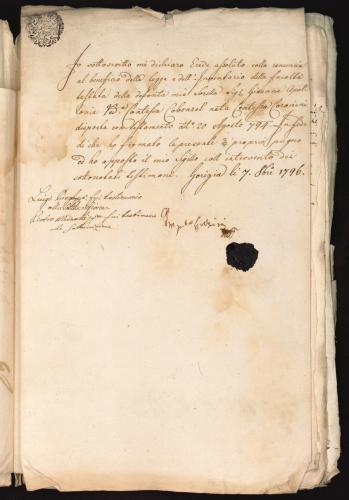 Io sottoscritto mi dichiaro Erede assoluto colla renuncia
al beneficio della legge e dell'Inventario della facoltà
lasciata della defonta mia
Contessa Cobenzel nata Contessa Coronini
disposta con testamento 20 Agosto 794. In fede
di che ho firmato la presente di proprio pugno
ed ho apposto il mio Sigillo coll intervento dei
sottonotati testimoni. Gorizia li 7. 1796.
Luigi fui testimonio
Pietro fui testimonio